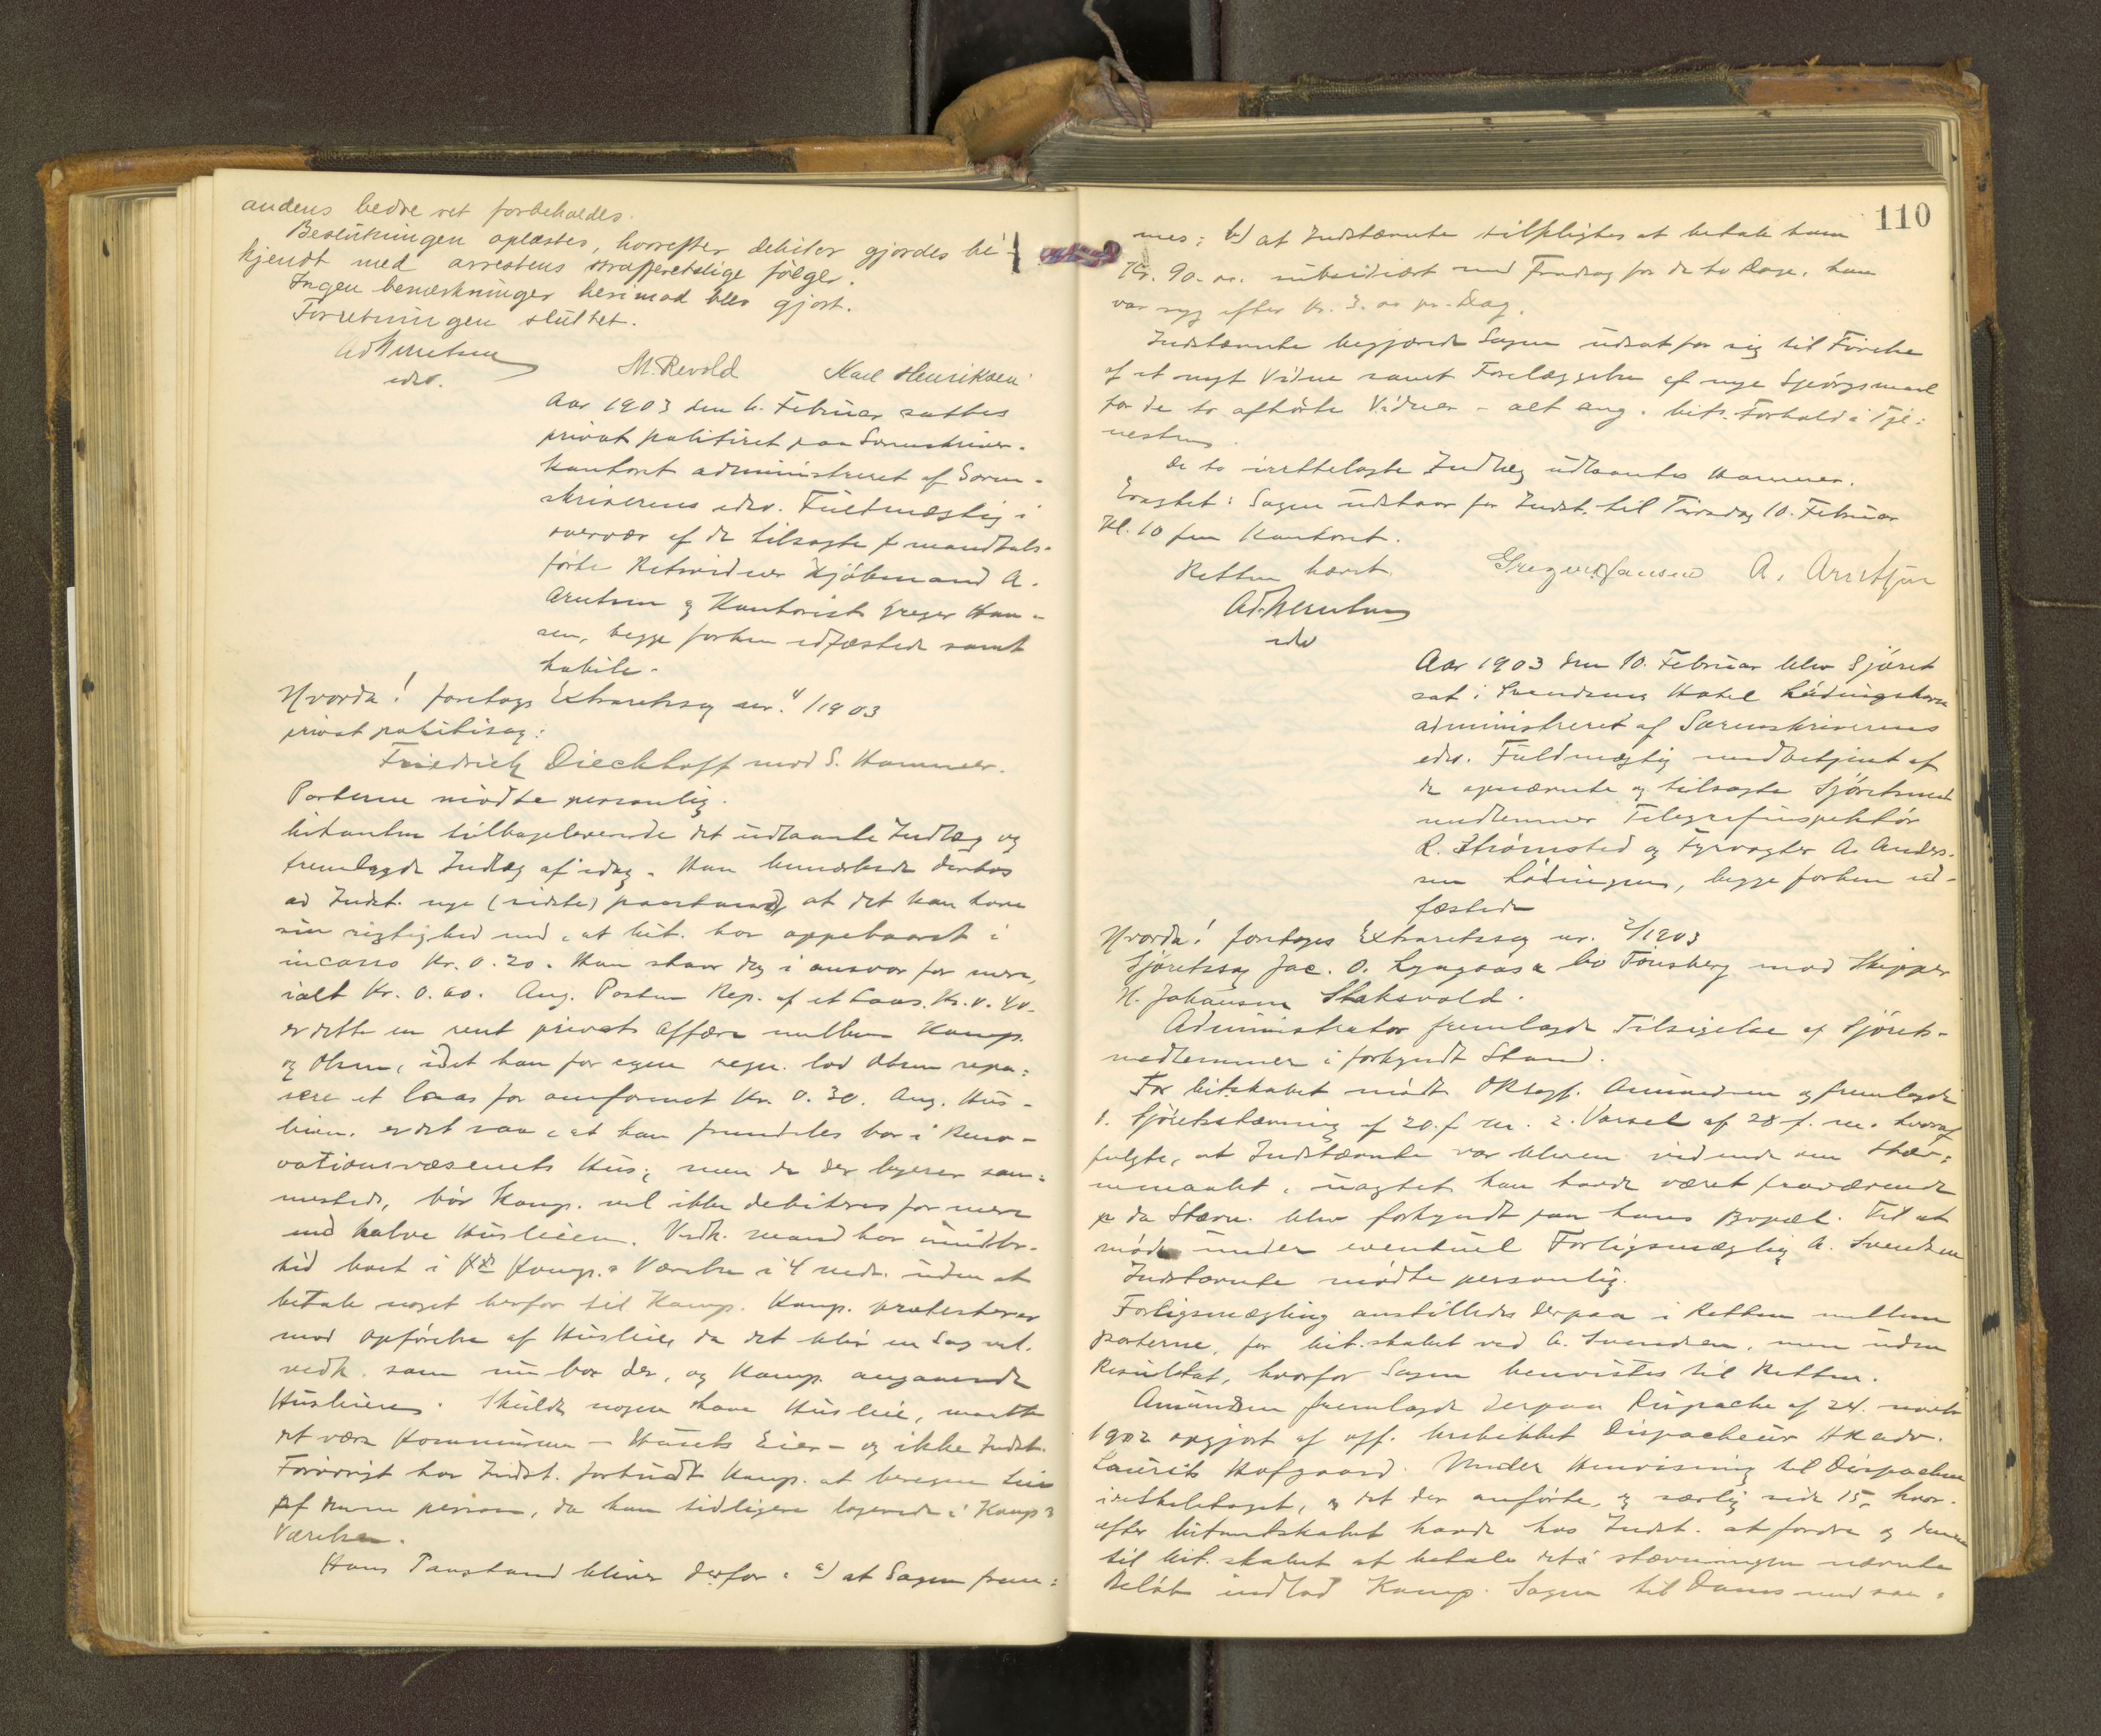 andens bedre ret forbeholdes.
Beslutningen oplæstes, hvorefter debitor gjordes be-
kjendt med arrestens strafferetslige følger.
Ingen bemærkninger herimod blev gjort.
Forretningen sluttet.
edsv.
M. Revold Karl Henriksen
Aar 1903 den 6. Februar sattes
privat politiret paa Sorenskriver-
kontoret administreret af Soren-
skriverens edsv. Fuldmægtig i
overvær af de tilsagte mandtals-
førte Retsvidner Kjøbmand A.
Arntsen og Kontorist Greger Han-
sen, begge forhen edfæstede samt
habile.
Hvorda! foretoges Extraretssag nr. 4/1903
privat politisag:
Friedrich Dieckhoff mod S. Hammer.
Parterne mødte personlig.
Citanten tilbageleverede det udlaante Indlæg og
fremlagde Indlæg af idag. Han bemærkede derhos
ad Indst. nye (sidste) paastand, at det kan have
sin rigtighed med, at Cit. har oppebaaret i
incasso Kr. 0.20. Han staar dog i ansvar for mere,
ialt Kr. 0.60. Ang. Posten Rep. af et Laas. Kr. 0.40.
er dette en rent privat affære mellem Komp.
og Olsen, idet han for egen regn. lod Olsen repa:
rere et laas for omformet Kr. 0.30. Ang. Hus-
leien, er det saa, at han fremdeles bor i Reno-
vationsvæsenets Hus; men da der logerer sam:
mesteds, bør Komp. vel ikke debiteres for mere
end halve Husleien. Vedk. mand har imidler-
tid boet i Komp.s Værelse i 4 mdr. uden at
betale noget herfor til Komp. Komp. protesterer
mod opførelse af Husleie, da det blir en Sag ml.
vedk. som nu bor der, og Komp. angaaende
Husleien. Skulde nogen have Husleie, maatte
det være Kommunen - Husets Eier - og ikke Indst.
Forøvrigt har Indst. forbudt Komp. at beregne Leie
af denne person, da han tidligere logerede i Komp.s
Værelse.
Hans Paastand bliver derfor: a) at Sagen frem:
110
mes; b) at Indstævnte tilpligtes at betale ham
Kr. 90.00. subsidiært med Fradrag for de to Dage, han
var syg efter Kr. 3.00 pr. Dag.
Indstævnte begjærede Sagen udsat for sig til Førelse
af et nyt Vidne samt Forelæggelse af nye Spørgsmaal
for de to afhørte Vidner - alt ang. Cits. Forhold i Tje:
nesten.
De to irettelagte Indlæg udlaantes Hammer.
Eragtet: Sagen udstaar for Indst. til Tirsdag 10. Februar
Kl. 10 fm Kontoret.
Retten hævet.
Greger Hansen A. Arntsen
edsv
Aar 1903 den 10. Februar blev Sjøret
sat i Svendsens Hotel Lødingshavn
administreret af Sorenskriverens
edsv. Fuldmægtig medbetjent af
de opnævnte og tilsagte Sjøretsmed
medlemmer Telegrafinspektør
R. Strømsted og Fyrvogter A. Ander-
sen Lødingen, begge forhen ed-
fæstede
Hvorda! foretoges Extraretssag nr. 2/1903
Sjøretssag Jac. O. Lyngaas & Co Tønsberg mod Skipper
H. Johansen Stoksvold.
Administrator fremlagde Tilsigelse af Sjørets-
medlemmer i forkyndt Stand.
For Citskabet mødte ORsagf. Amundsen og fremlagde
1. Sjøretsstævning af 20. f. m. 2. Varsel af 28 f. m. hvoraf
fulgte, at Indstævnte var bleven vidende om Stæv:
nemaalet, uagtet han havde været fraværende
da Stævn. blev forkyndt paa hans Bopæl. Til at
møde under eventuel Forligsmægling A. Svendsen
Indstævnte mødte personlig.
Forligsmægling anstilledes derpaa i Retten mellem
parterne, for Cit.skabet ved A. Svendsen, men uden
Resultat, hvorfor Sagen henvistes til Retten.
Amundsen fremlagde derpaa Dispache af 24. novbr
1902 opgjort af off. beskikket Dispacheur HRadv.
Laurits Hofgaard. Under Henvisning til Dispachen
i det hele taget, og det der anførte, og særlig side 15, hvor-
efter Citantskabet havde hos Indst. at fordre og denne
til Cit.skabet at betale det i stævningen nævnte
Beløb indlod Komp. Sagen til Doms med saa: